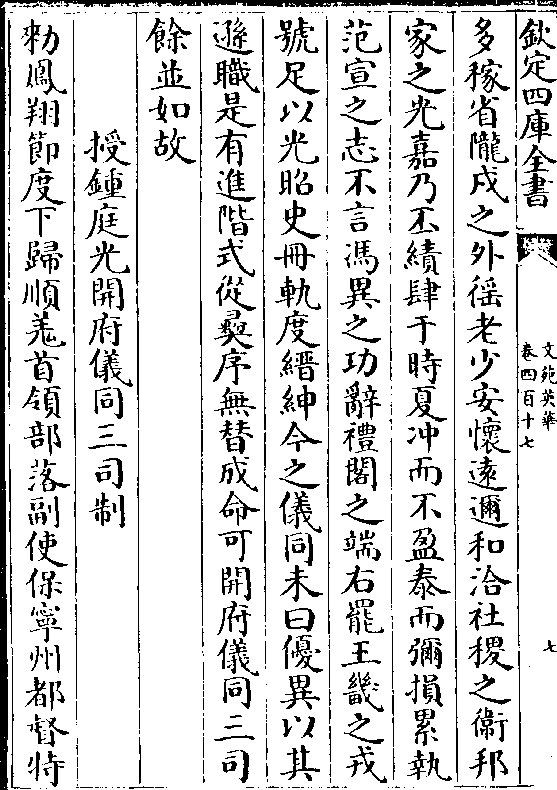 欽定四庫全書
文苑英華
卷四百十七
七
多稼省隴戍之外徭老少安懷遠邇和洽社稷之衛邦
家之光嘉乃丕績肆于時夏冲而不盈泰而彌損累執
范宣之志不言馮異之功辭禮闈之端右罷王畿之戎
號足以光昭史冊軌度縉紳今之儀同未曰優異以其
遜職是有進階式從彞序無替成命可開府儀同三司
餘並如故
授鍾庭光開府儀同三司制
勑鳳翔節度下歸順羌首領部落副使保寧州都督特